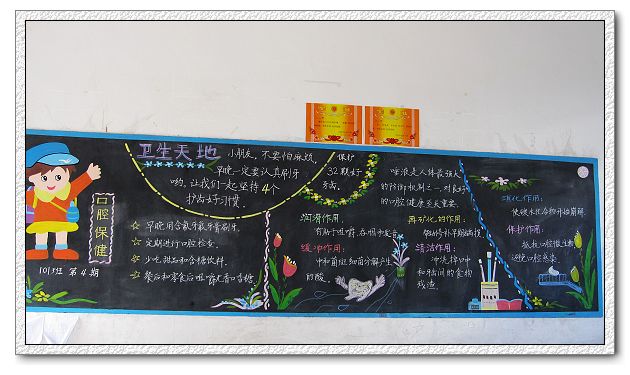 口腔保健
101班 第4期
卫生天地
小朋友，不要怕麻烦，
早晚一定要认真刷牙
哟，让我们一起坚持4个
护齿好习惯。
☆ 早晚用含氟牙膏刷牙。
☆ 定期进行口腔检查。
☆ 少吃甜品和含糖饮料。
☆ 餐后和零食后咀嚼无香口含糖
保护
32颗好
牙齿。
润滑作用：
有助于咀嚼、吞咽和发音。
缓冲作用：
中和菌斑细菌分解产生
的酸。
唾液是人体最强大
的防御机制之一，对良好
的口腔健康至关重要。
再矿化的作用：
清洁作用：
冲洗掉口中
和牙间的食物
残渣。
消化作用：
保护作用：